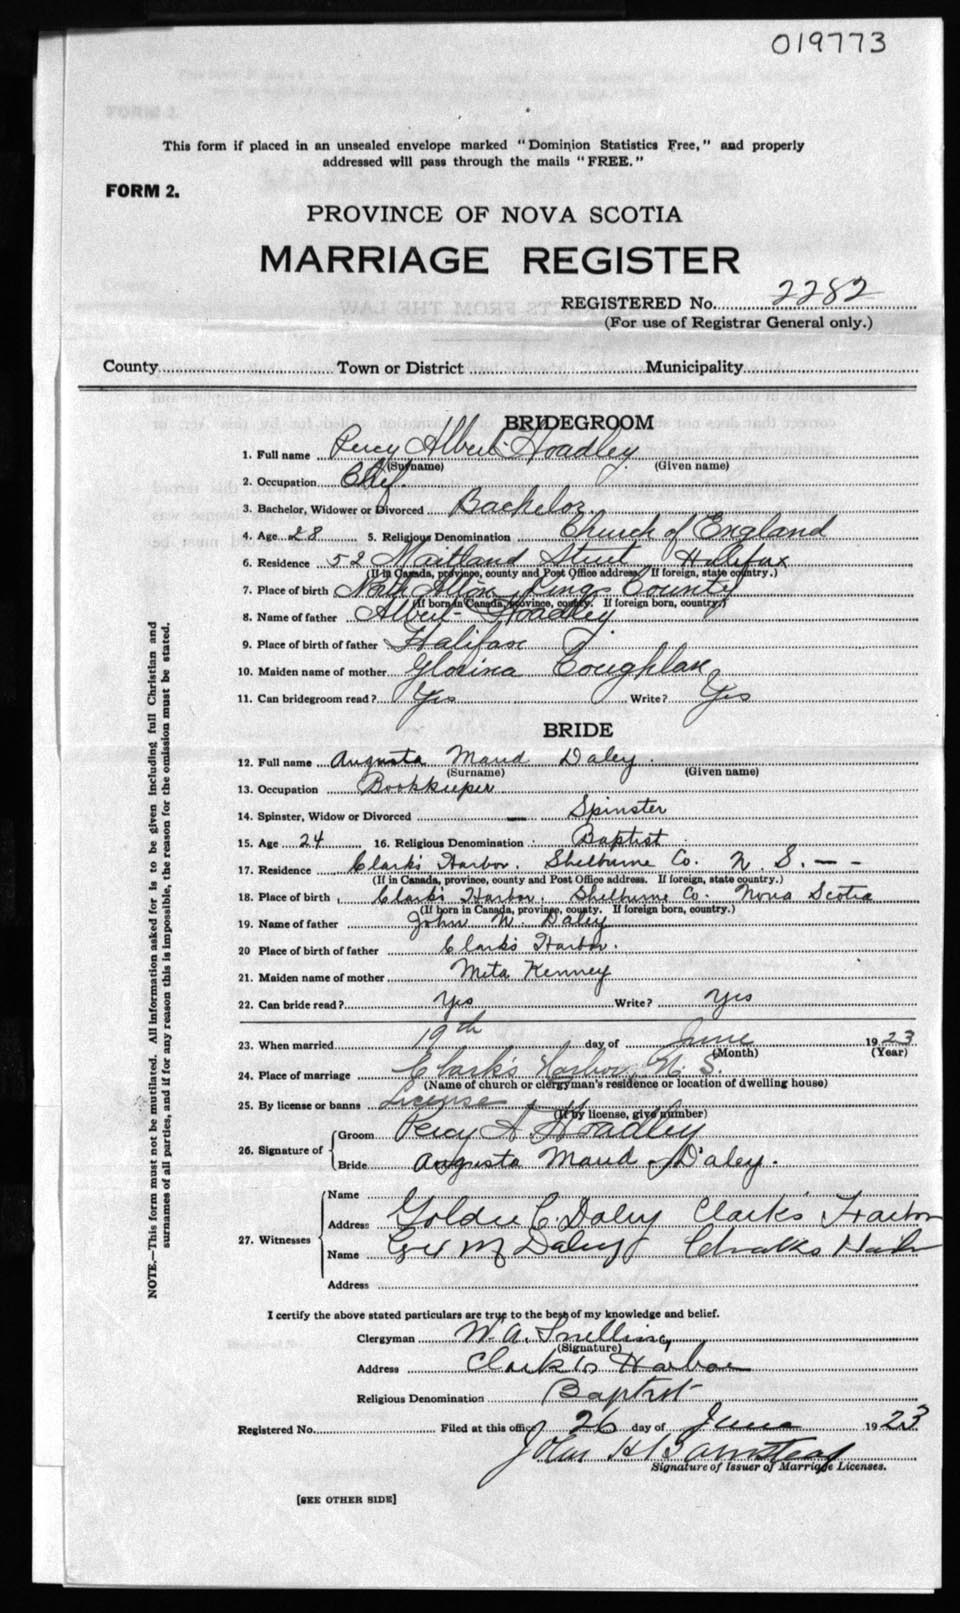 019773
This form if placed in an unsealed envelope marked "Dominion Statistics Free," and properly
addressed will pass through the mails "FREE."
FORM 2.
PROVINCE OF NOVA SCOTIA
MARRIAGE REGISTER
REGISTERED No. 2282
(For use of Registrar General only.)
County Town or District Municipality
BRIDEGROOM
1. Full name Percy Albert Hoadley
(Surname) (Given name)
2. Occupation Chef
3. Bachelor, Widower or Divorced Bachelor
4. Age 28 5. Religious Denomination Church of England
6. Residence 52 Maitland Street Halifax
(If in Canada, province, county and Post Office address. If foreign, state country.)
7. Place of birth North Alton Kings County
(If born in Canada, province, county. If foreign born, country.)
8. Name of father Albert Hoadley
9. Place of birth of father Halifax
10. Maiden name of mother Glorina Coughlan
11. Can bridegroom read? Yes Write? Yes
BRIDE
12. Full name Augusta Maud Daley.
(Surname) (Given name)
13. Occupation Bookkeeper
14. Spinster, Widow or Divorced — Spinster
15. Age 24 16. Religious Denomination Baptist
17. Residence Clark's Harbor. Shelburne Co. N. S. – –
(If in Canada, province, county and Post Office address. If foreign, state country.)
18. Place of birth Clark's Harbor. Shelburne Co. Nova Scotia
(If born in Canada, province, county. If foreign born, country.)
19. Name of father John N. Daley
20 Place of birth of father Clark's Harbor.
21. Maiden name of mother Meta Kenney
22. Can bride read? Yes Write? Yes
23. When married 19th day of June 1923
(Month) (Year)
24. Place of marriage Clark's Harbor, N. S.
(Name of church or clergyman's residence or location of dwelling house)
25. By license or banns License
(If by license, give number)
26. Signature of Groom Percy A. Hoadley
Bride Augusta Maud Daley.
27. Witnesses
Name
Address Goldie C. Daley Clark's Harbor
Name M Daley Clarks Harbor
Address
I certify the above stated particulars are true to the best of my knowledge and belief.
Clergyman W. A. Snelling
(Signature)
Address Clark's Harbor
Religious Denomination Baptist
Registered No. Filed at this office 26 day of June 1923
John H Barnstead
Signature of Issuer of Marriage Licenses.
[SEE OTHER SIDE]
NOTE.—This form must not be mutilated. All information asked for is to be given including full Christian and
surnames of all parties, and if for any reason this is impossible, the reason for the omission must be stated.